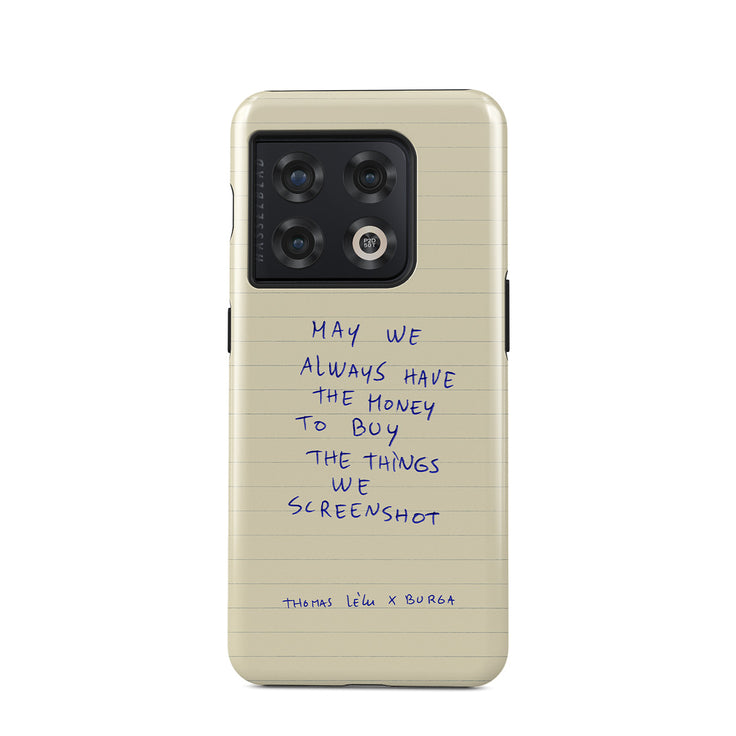 HASSELBLAD
P2D
50T
MAY WE
ALWAYS HAVE
THE MONEY
TO BUY
THE THINGS
WE
SCREENSHOT
THOMAS Lèlu X BURGA